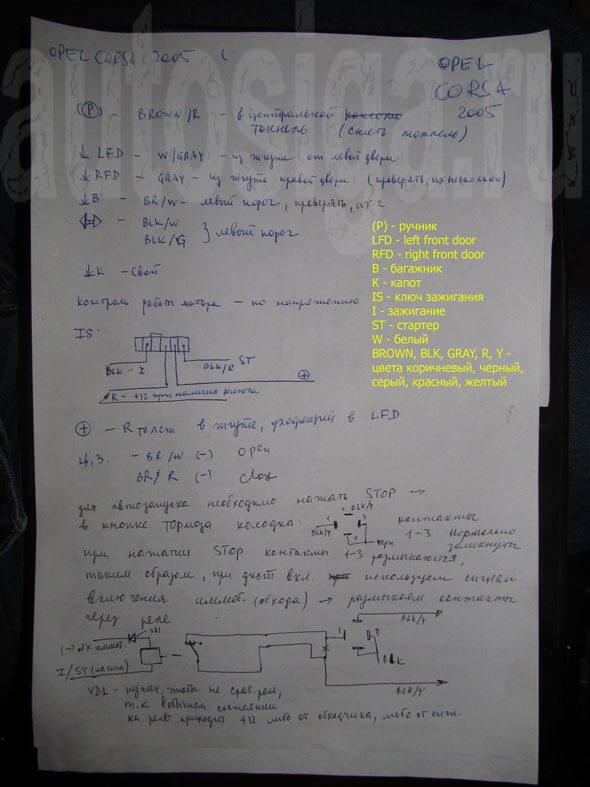 OPEL CORSA 2005
OPEL
CORSA
2005
(P) - BROWN/R - в центральной консоли
тоннель (снять тоннель)
LFD - W/GRAY - из жгута от левой двери
RFD - GRAY - из жгута правой двери (проверять, их несколько)
B - BR/W - левый порог, проверять, их 2
BLK/W
BLK/G } левый порог
K - Свой
контроль работы мотора - по напряжению
IS:
BLK - I
BLK/R ST
R - +12 при наличии ключа
+ - R толст в жгуте, уходящей в LFD
ц.з. - BR/W (-) open
BR/R (-) close
для автозапуска необходимо нажать STOP →
в кнопке тормоза колодка:
BLK/Y
1 2 3 4
BLK/Y
черн
контакты
1-3 нормально
замкнуты
при нажатии STOP контакты 1-3 размыкаются,
таким образом, при дист вкл. используем сигнал
включения иммоб. (обхода) → размыкаем контакты
через реле
BLK/Y
VD1
(-) обх. иммоб.
I/ST (на сигн)
1 3
BLK
BLK/Y
VD1 - нужен, чтобы не сраб. реле,
т.к в обычном состоянии
на реле приходит +12 либо от обходчика, либо от сигн.
(P) - ручник
LFD - left front door
RFD - right front door
B - багажник
K - капот
IS - ключ зажигания
I - зажигание
ST - стартер
W - белый
BROWN, BLK, GRAY, R, Y -
цвета коричневый, черный,
серый, красный, желтый
autosiga.ru